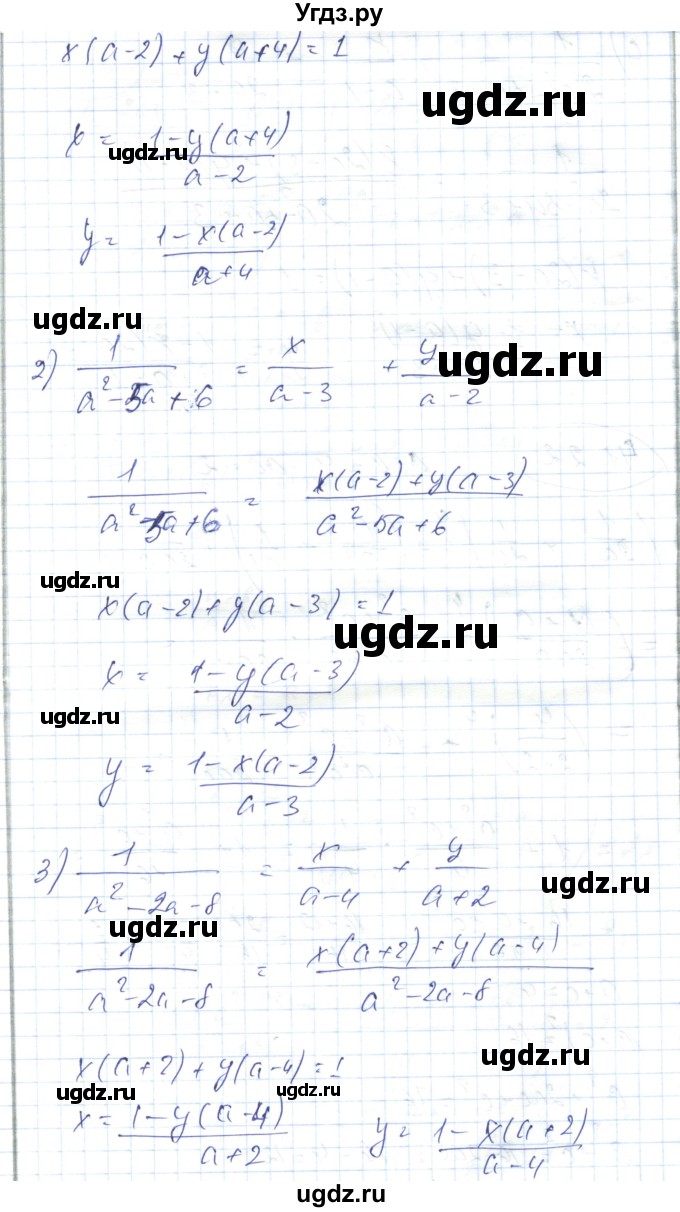 Угдз.ру
x(a-2)+y(a+4)=1
ugdz.ru
x = \frac{1-y(a+4)}{a-2}
ugdz.ru
y = \frac{1-x(a-2)}{a+4}
ugdz.ru
2) \frac{1}{a^2-5a+6} = \frac{x}{a-3} + \frac{y}{a-2}
ugdz.ru
\frac{1}{a^2-5a+6} = \frac{x(a-2)+y(a-3)}{a^2-5a+6}
ugdz.ru
x(a-2)+y(a-3)=1
ugdz.ru
x = \frac{1-y(a-3)}{a-2}
ugdz.ru
y = \frac{1-x(a-2)}{a-3}
3) \frac{1}{a^2-2a-8} = \frac{x}{a-4} + \frac{y}{a+2}
ugdz.ru
ugdz.ru
\frac{1}{a^2-2a-8} = \frac{x(a+2)+y(a-4)}{a^2-2a-8}
ugdz.ru
x(a+2)+y(a-4)=1
ugdz.ru
ugdz.ru
x = \frac{1-y(a-4)}{a+2} y = \frac{1-x(a+2)}{a-4}
ugdz.ru